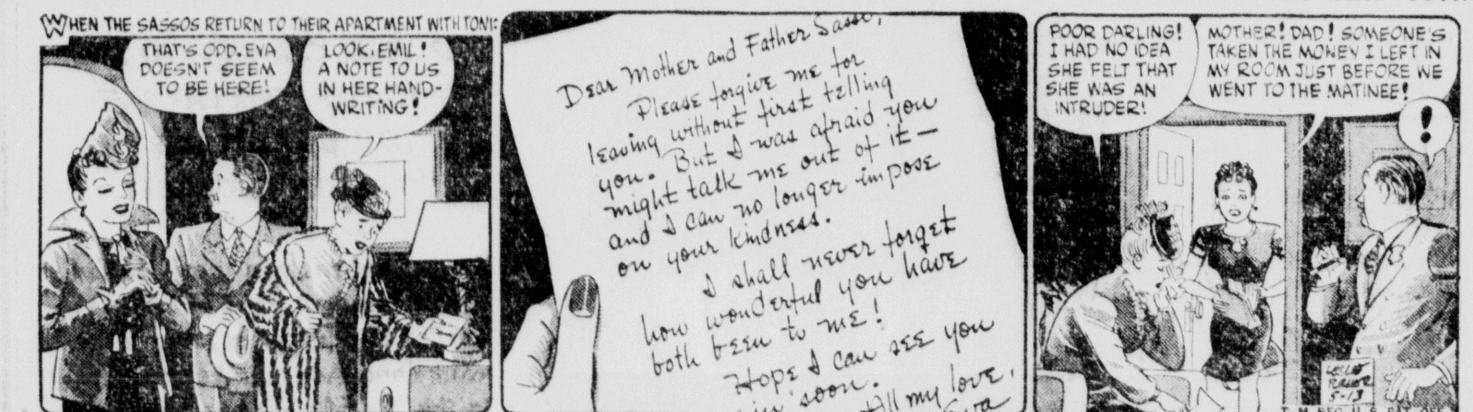 WHEN THE SASSOS RETURN TO THEIR APARTMENT WITH TONI:
THAT'S ODD. EVA
DOESN'T SEEM
TO BE HERE!
LOOK, EMIL!
A NOTE TO US
IN HER HAND-
WRITING!
Dear Mother and Father Sasso,
Please forgive me for
leaving without first telling
you. But I was afraid you
might talk me out of it—
and I can no longer impose
on your kindness.
I shall never forget
how wonderful you have
both been to me!
Hope I can see you
soon.
All my love,
Eva
POOR DARLING!
I HAD NO IDEA
SHE FELT THAT
SHE WAS AN
INTRUDER!
MOTHER! DAD! SOMEONE'S
TAKEN THE MONEY I LEFT IN
MY ROOM JUST BEFORE WE
WENT TO THE MATINEE!
!
LESLIE
TURNER
5-13